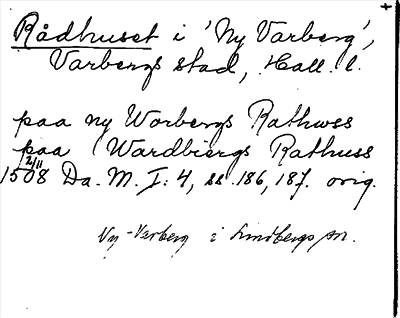 Rådhuset i 'Ny Varberg',
Varbergs stad, Hall. l.
paa ny Worbergs Rathwss
paa (Wardbiergs Rathuss
2/11
1508 Da. M. I: 4, ss. 186, 187. orig.
Ny-Varberg i Lindbergs sn.